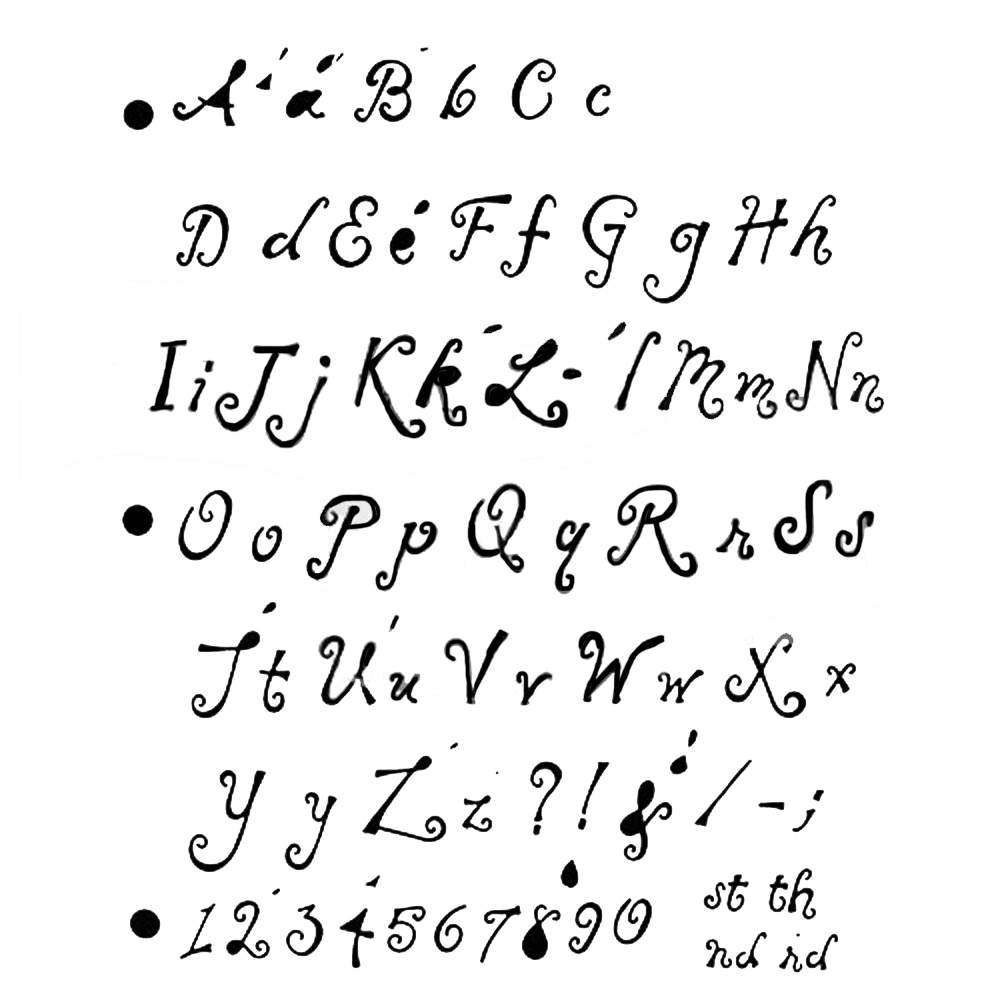 A a B b C c
D d E e F f G g H h
I i J j K k L l M m N n
O o P p Q q R r S s
T t U u V v W w X x
Y y Z z ? ! & / - ;
1 2 3 4 5 6 7 8 9 0 st th
nd rd